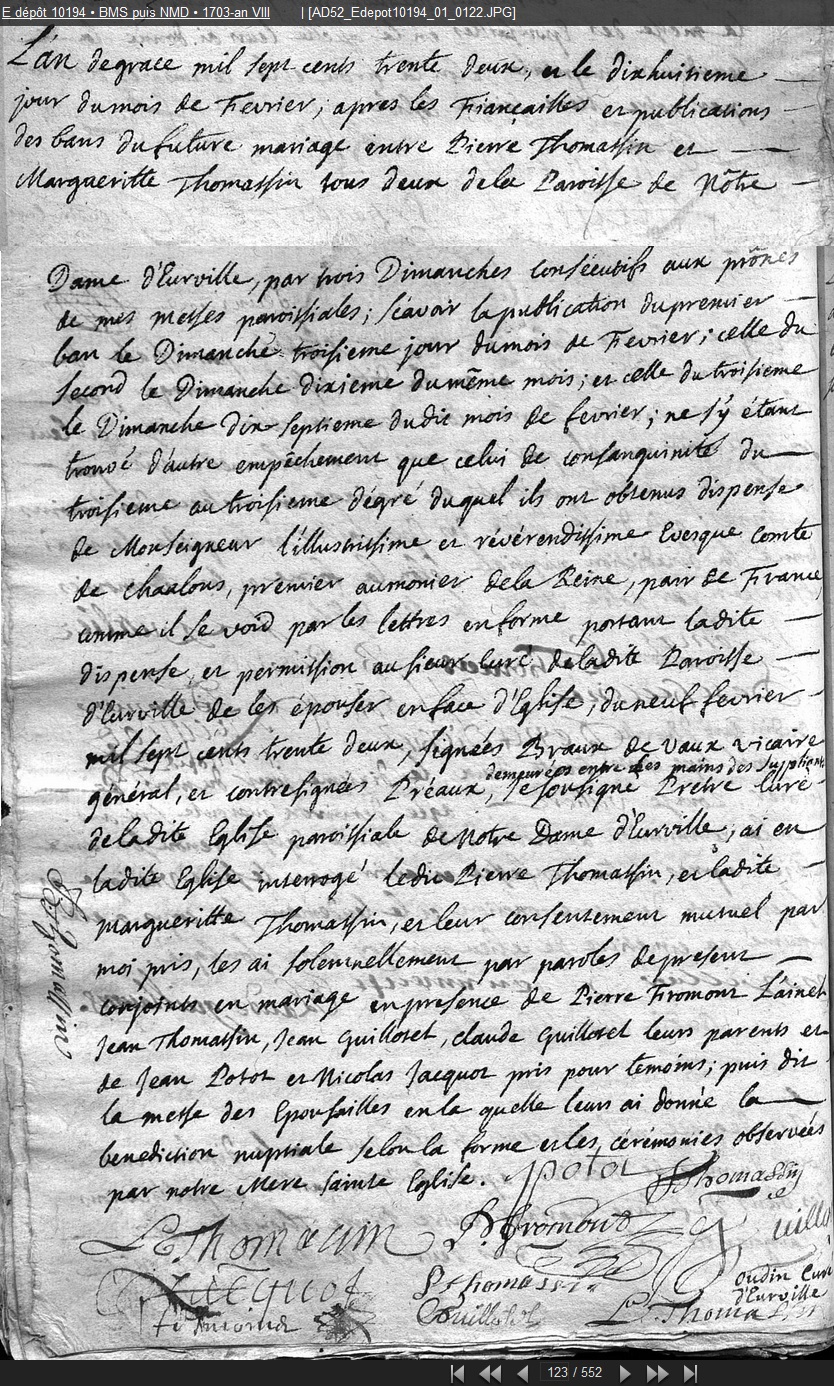 E dépôt 10194 • BMS puis NMD • 1703-an VIII | [AD52_Edepot10194_01_0122.JPG]
L'an de grace mil sept cents trente deux, et le dixhuitieme
jour du mois de Fevrier ; apres les Fiançailles et publications
des bans du future mariage entre Pierre Thomassin et
Margueritte Thomassin tous deux de la Paroisse de Nôtre
Dame d'Eurville, par trois Dimanches Consécutifs aux prônes
de mes messes paroissiales ; Scavoir la publication du premier
ban le Dimanche troisieme jour du mois de Fevrier ; celle du
second le Dimanche dixieme du même mois ; et celle du troisieme
le Dimanche dix septieme dudit mois de fevrier ; ne s'y étant
trouvé d'autre empêchement que celui de consanguinité du
troisieme au troisieme dégré duquel ils ont obtenus dispense
de Monseigneur l'illustrissime et révérendissime Evesque Comte
de Chaalons, premier aumonier de la Reine, pair de France
comme il se void par les lettres en forme portant ladite
dispense, et permission au sieur Curé de ladite Paroisse
d'Eurville de les épouser en face d'Eglise, du neuf fevrier
mil sept cents trente deux, signées Braux de Vaux vicaire
demeurées entre les mains des suppliants
général, et contresignées Préaux, Je soussigné Pretre Curé
de ladite Eglise paroissiale de Notre Dame d'Eurville, ai en
ladite Eglise interrogé ledit Pierre Thomassin, et ladite
Margueritte Thomassin, et leur consentement mutuel par
moi pris, les ai solemnellement par paroles de present
conjoints en mariage en presence de Pierre Fromont L'ainé
Jean Thomassin, Jean Guillotet, Claude Guillotet leurs parents et
de Jean Potot et Nicolas Jacquot pris pour témoins ; puis dit
la messe des Epousailles en la quelle leurs ai donné la
benediction nuptiale selon la forme et les cérémonies observées
par notre Mere Sainte Eglise.
J potot
Thomassin
Thomassin
P. fromont
Jacquot
P thomassin
oudin Curé
d'Eurville
Thomassin
123 / 552